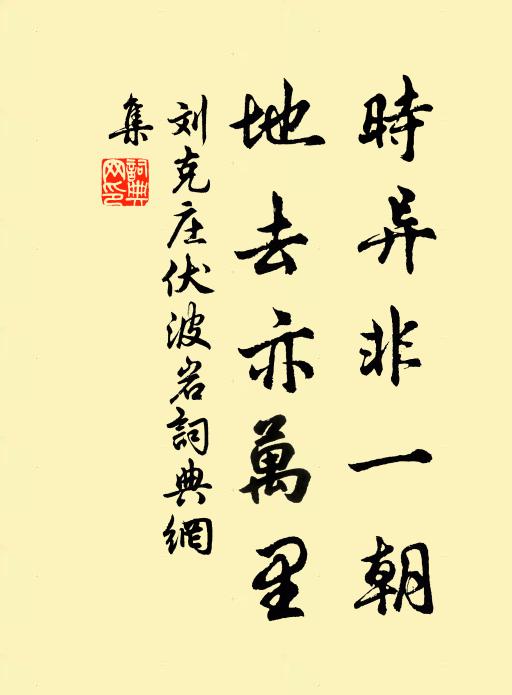 時异非一朝
地去亦萬里
刘克庄伏波岩詞典網
集
詞典網印